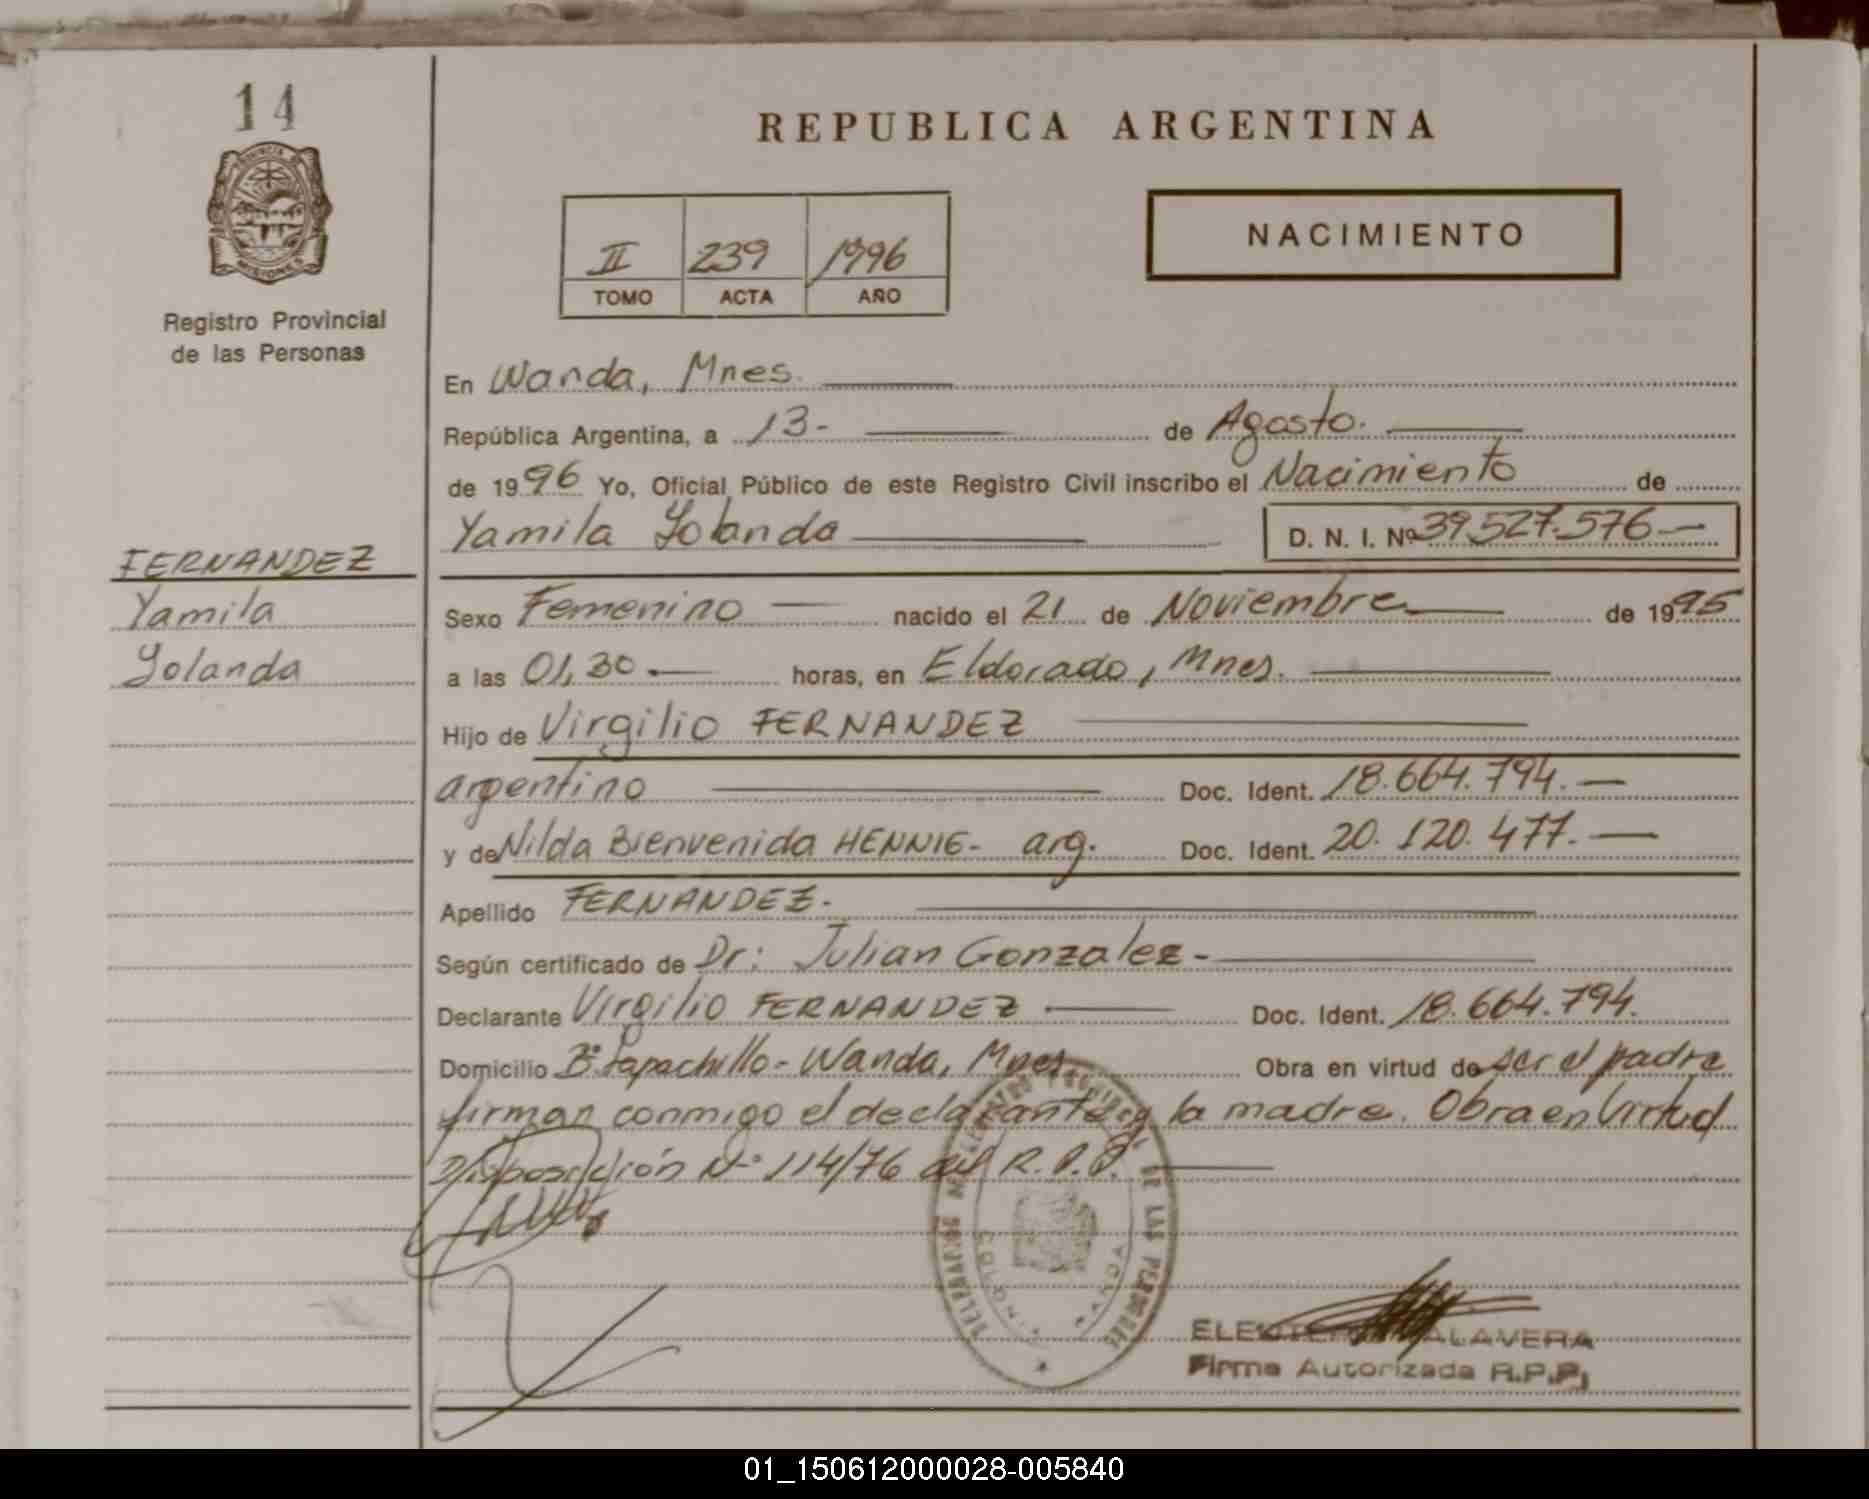 14
REPUBLICA ARGENTINA
PROVINCIA DE
MISIONES
Registro Provincial
de las Personas
II 239 1996
TOMO ACTA AÑO
NACIMIENTO
En Wanda, Mnes.
República Argentina, a 13- de Agosto.
de 1996 Yo, Oficial Público de este Registro Civil inscribo el Nacimiento de
Yamila Yolanda D. N. I. Nº 39.527.576
FERNANDEZ
Yamila
Yolanda
Sexo Femenino nacido el 21 de Noviembre de 1995
a las 01,30 horas, en Eldorado, Mnes.
Hijo de Virgilio FERNANDEZ
argentino Doc. Ident. 18.664.794.
y de Nilda Bienvenida HENNIG- arg. Doc. Ident. 20.120.477.
Apellido FERNANDEZ.
Según certificado de Dr: Julian Gonzalez-
Declarante Virgilio FERNANDEZ Doc. Ident. 18.664.794.
Domicilio Bº - Wanda, Mnes Obra en virtud de ser el padre
firman conmigo el declarante y la madre. Obra en Virtud
Disposición Nº 114/76 del R.P.P.
DE LAS PERSONAS
COLONIA WANDA
ALAVERA
Firma Autorizada R.P.P.
01_150612000028-005840